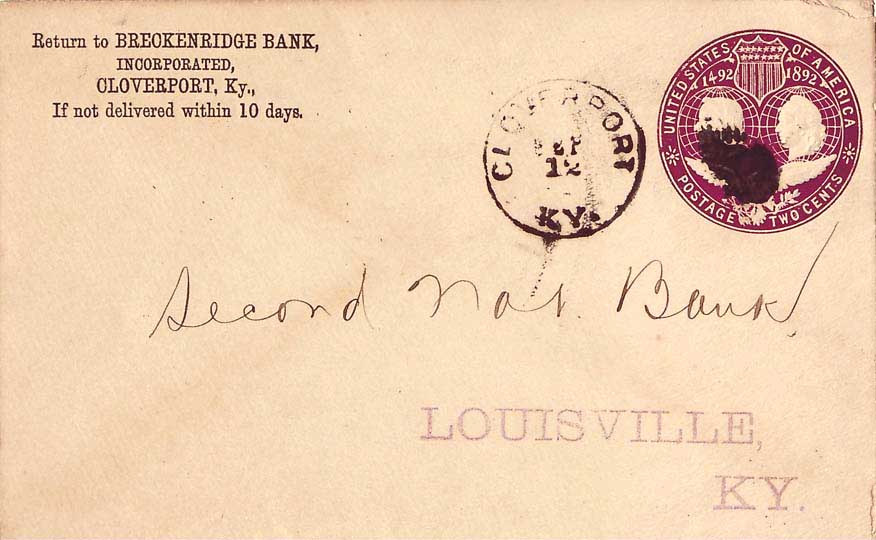 Return to BRECKENRIDGE BANK,
INCORPORATED,
CLOVERPORT, Ky.,
If not delivered within 10 days.
CLOVERPORT
12
KY.
UNITED STATES OF AMERICA
1492 1892
POSTAGE TWO CENTS
Second Nat. Bank
LOUISVILLE,
KY.